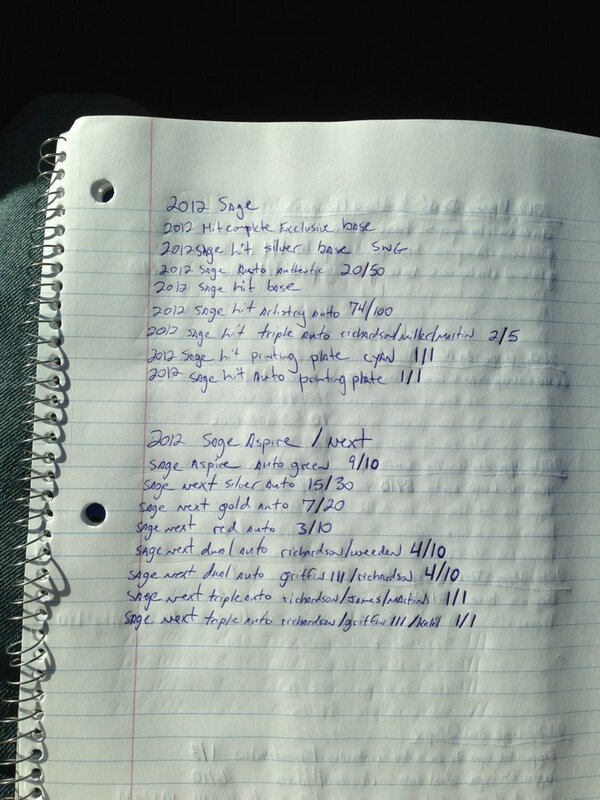 2012 Sage
2012 Hit complete Exclusive base
2012 Sage hit silver base SNG
2012 Sage Auto Authentic 20/50
2012 Sage hit base
2012 Sage hit Artistry Auto 74/100
2012 Sage hit triple Auto richardson/miller/martin 2/5
2012 Sage hit printing plate cyan 1/1
2012 Sage hit Auto printing plate 1/1
2012 Sage Aspire / Next
Sage Aspire Auto green 9/10
Sage next silver Auto 15/30
Sage next gold auto 7/20
Sage next red auto 3/10
Sage next dual auto richardson/weeden 4/10
Sage next dual Auto griffin III/richardson 4/10
Sage next triple Auto richardson/James/Martin 1/1
Sage next triple auto richardson/griffin III/ 1/1